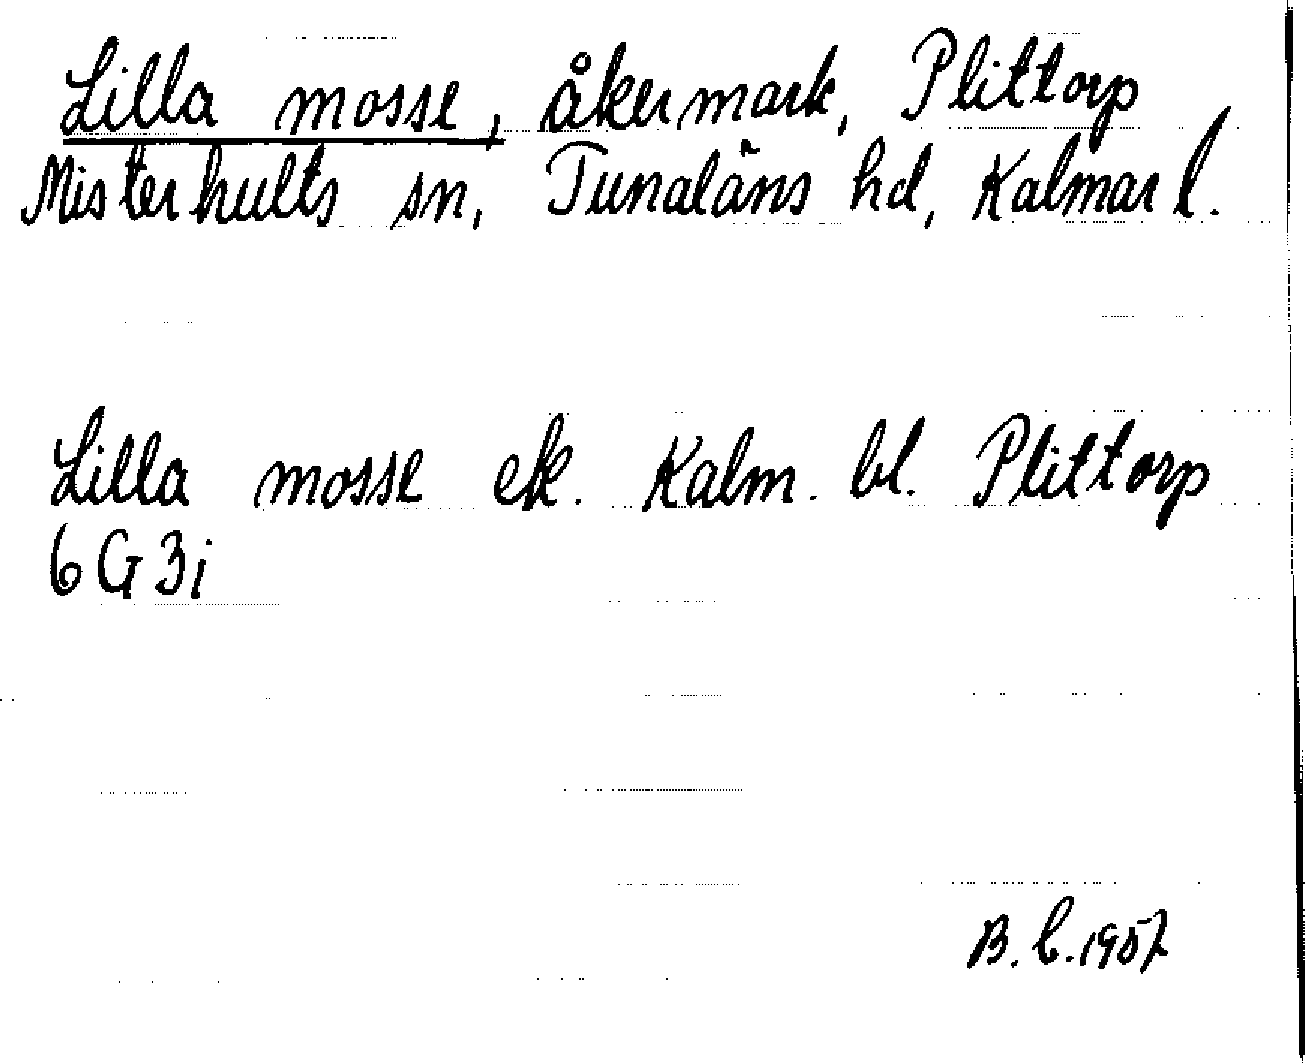 Lilla mosse, åkermark, Plittorp
Misterhults sn, Tunaläns hd, Kalmar l.
Lilla mosse ek. Kalm. bl. Plittorp
6G3i
B. C. 1957